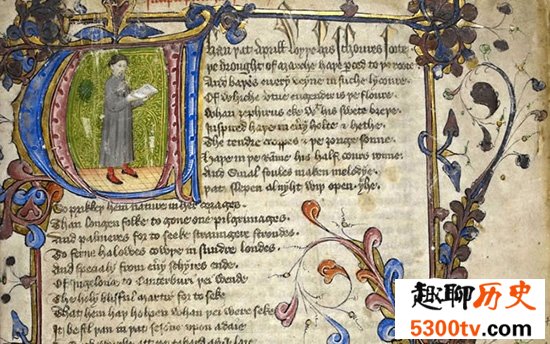 Whan þat Aprill wiþ his schoures soote
þe drought of marche haþe perced to þe roote
And baþed euery veyne in suche lycoure
Of whiche vertue engendred is þe floure
Whan zephirus eke wt his swete breþe
Inspired haþe in euery holte & heþe
The tendre croppes & þe ȝonge sonne
Haþe in þe Ramme his half cours ronne
And smal foules maken melodye
þat slepen al nyht wiþ open yhe
So prikkeþ hem nature in her corages
Than longen folke to gone one pilgrimages
And palmeres for to seeke straungere strondes
To ferne halowes cowþe in sundre londes
And specialy from euery schires ende
Of Ingelonde to Canterburi þei wende
The holy blisful martir for to seke
That hem haþ holpen whan þei were seke
It befil þan in þat sesone upon a daie
趣聊历史
5300tv.com